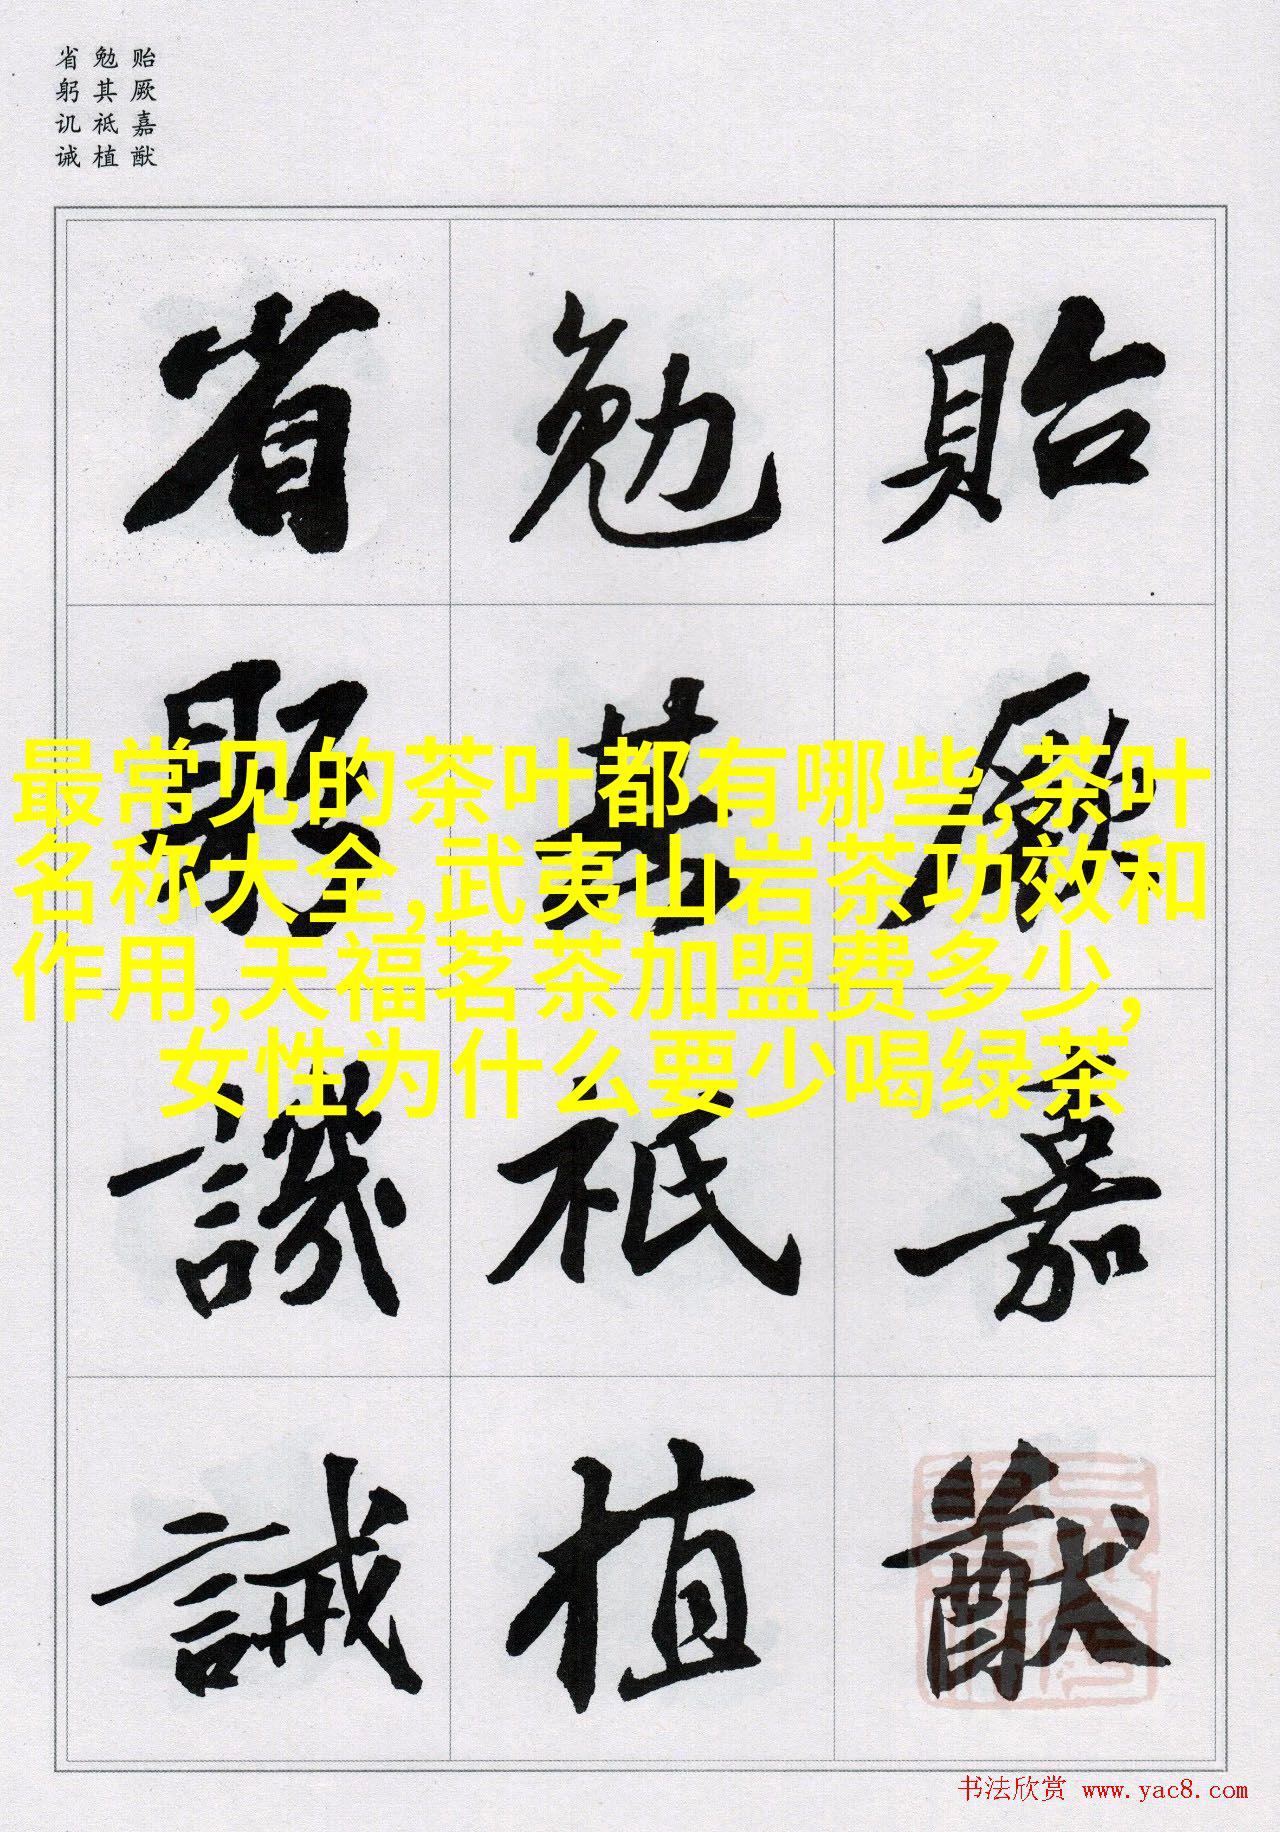 贻厥嘉猷
勉其祗植
省躬讥诫
貽厥嘉猷
勉其祗植
省躬譏誡
最常见的茶叶都有哪些,茶叶
名称大全,武夷山岩茶功效和
作用,天福茗茶加盟费多少,
女性为什么要少喝绿茶
书法欣赏 www.yac8.com